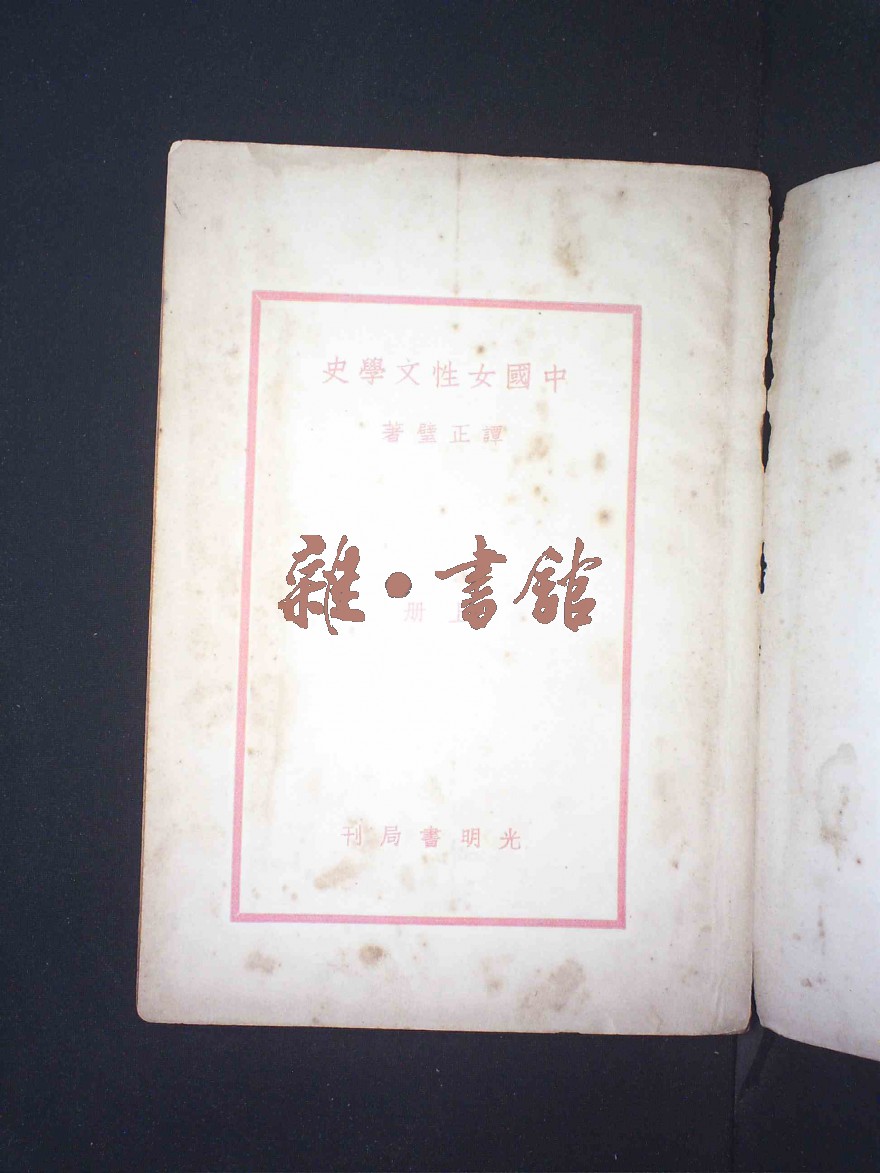 中國女性文學史
譚正璧著
雜·書館
上册
光明書局刊